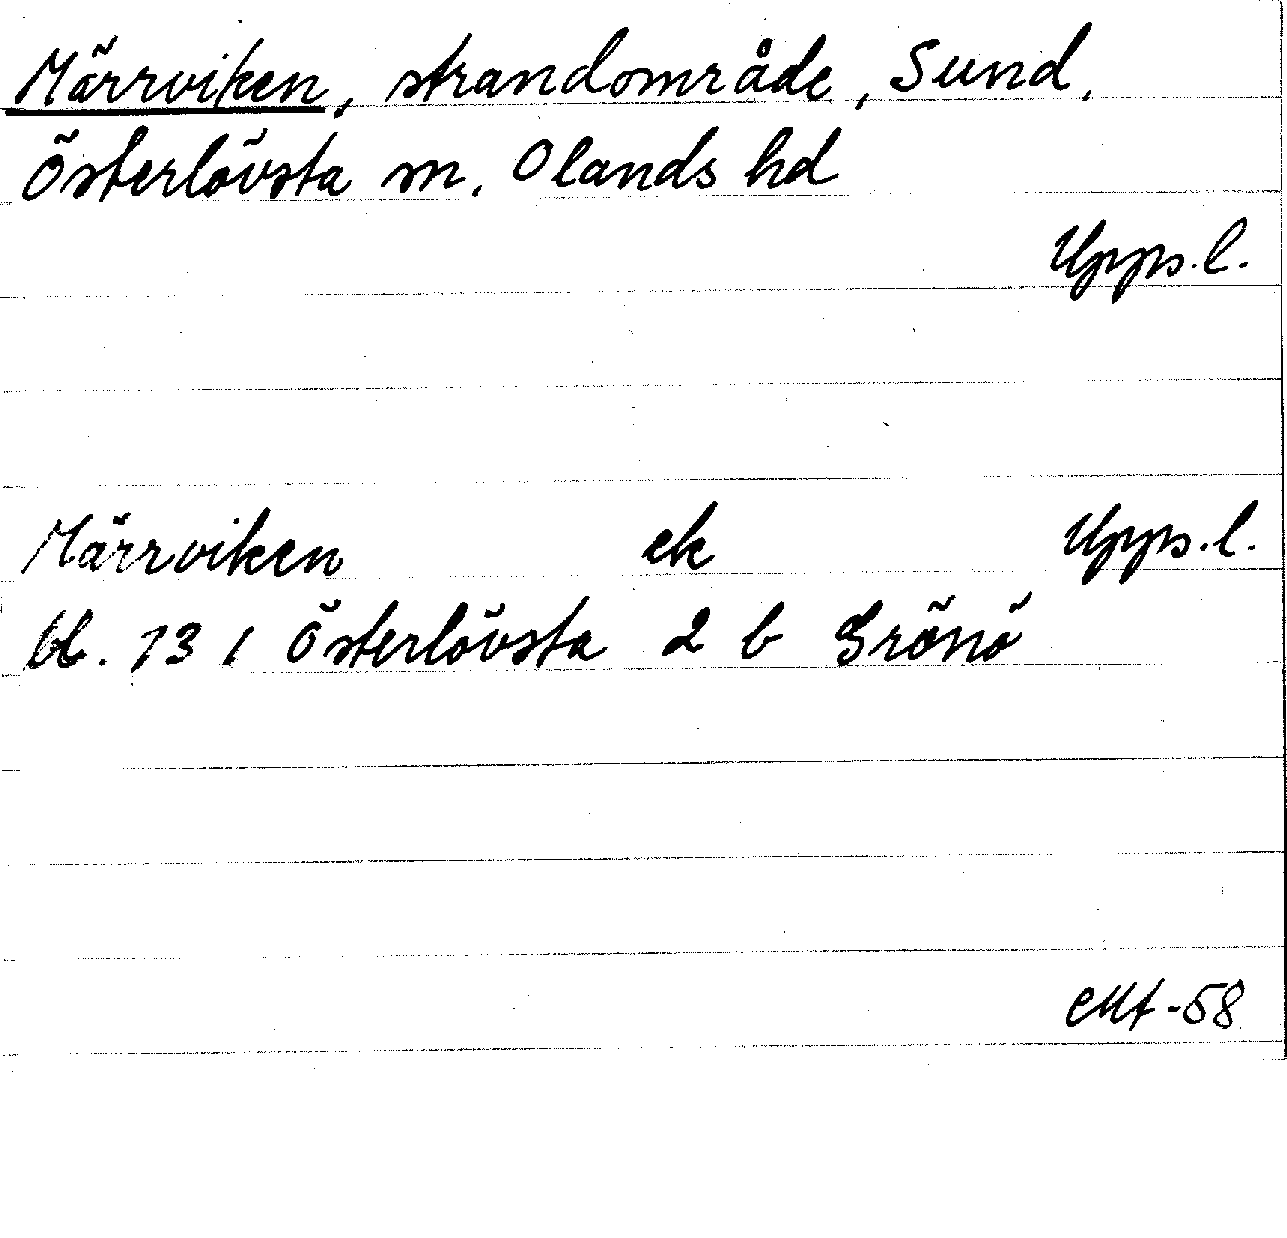 Märrviken, strandområde, Sund,
Österlövsta sn. Olands hd
Upps.l.
Märrviken ek Upps.l.
bl. 13 I Österlövsta 2 b Grönö
-58